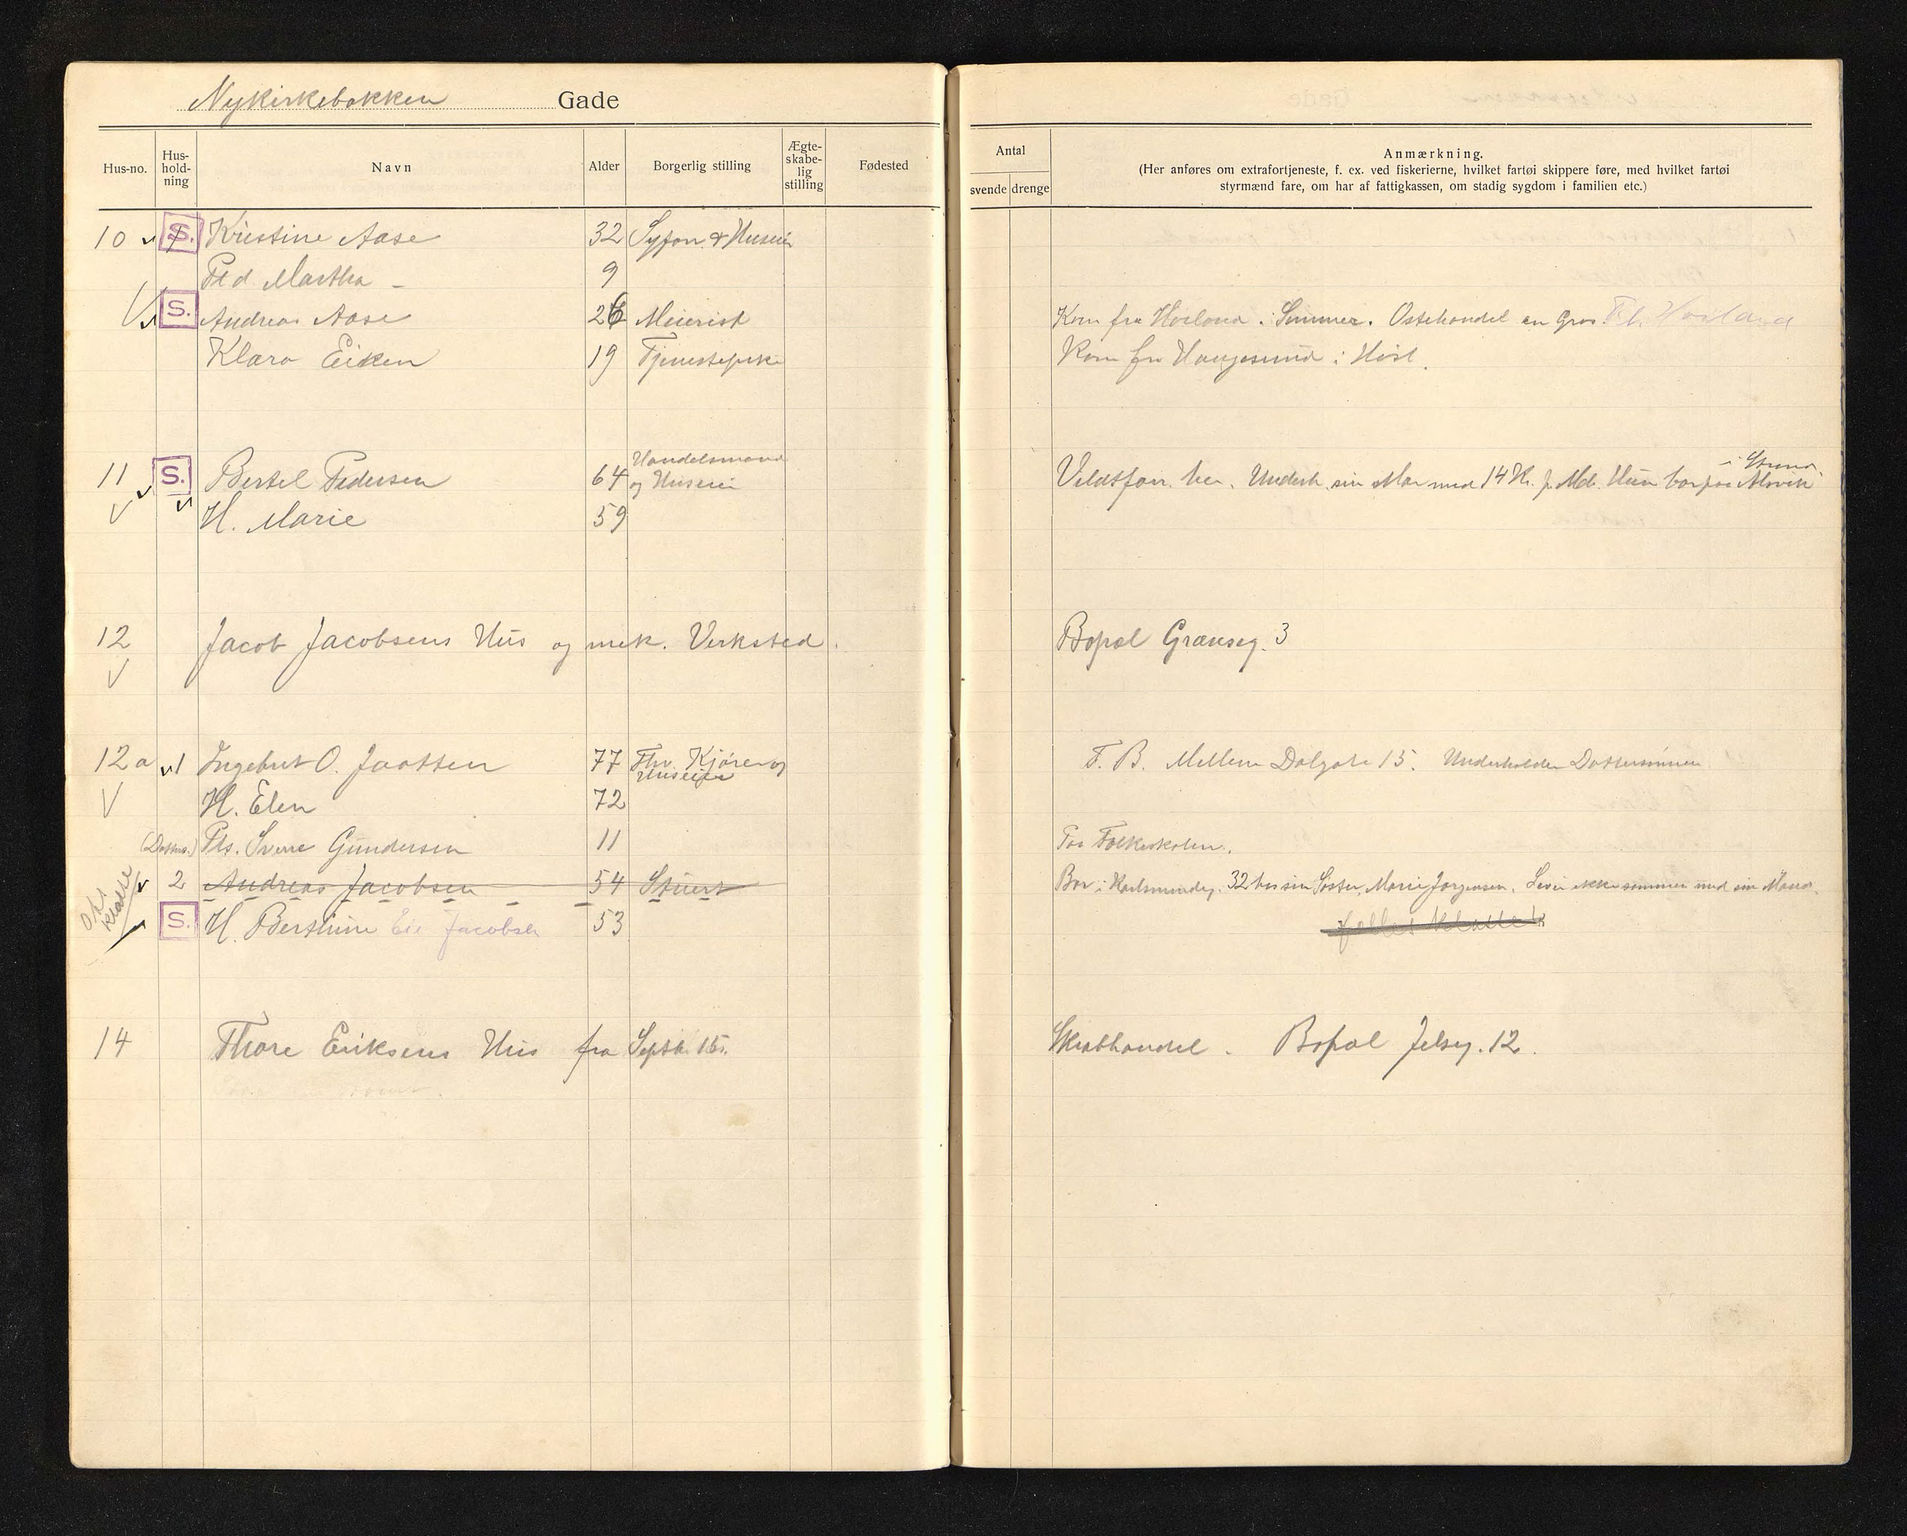 Nykirkebakken Gade
Hus-no. Hus-hold-ning Navn Alder Borgerlig stilling Ægte-skabe-lig stilling Fødested
Antal svende drenge
Anmærkning.
(Her anføres om extrafortjeneste, f. ex. ved fiskerierne, hvilket fartøi skippere føre, med hvilket fartøi
styrmænd fare, om har af fattigkassen, om stadig sygdom i familien etc.)
10 S. Kristine Aase 32 Syforr. & Huseier
Pld. Martha - 9
S. Andreas Aase 26 Meierist Kom fra Høiland i Sommer. Ostehandel en Gros. Høiland
Klara Eiken 19 Tjenestepike Kom fra Haugesund i Høst.
11 S. Bertel Pedersen 64 Handelsmand og Huseier Underh. sin Mor med 14 Kr. p. Md. Hun bor paa Alsvik i Strand.
H. Marie 59
12 Jacob Jacobsens Hus og mek. Verksted. Bopæl Grænseg. 3
12a 1 Ingebret O. Jaatten 77 Fhv. Kjører og Huseier F. B. Mellem Dalgate 15. Underholder Dattersønnen
H. Elen 72
(Datters.) Pls. Sverre Gundersen 11 Paa Folkeskolen.
2 Andreas Jacobsen 54 Stuert Bor i Karlsmindeg. 32 hos sin Søster Marie Jørgensen. Lever ikke sammen med sin Mand.
S. H. Berthine Jacobsen 53
14 Thore Eriksens Hus fra Septb. 15. Skrabhandel. Bopæl Jelseg. 12.